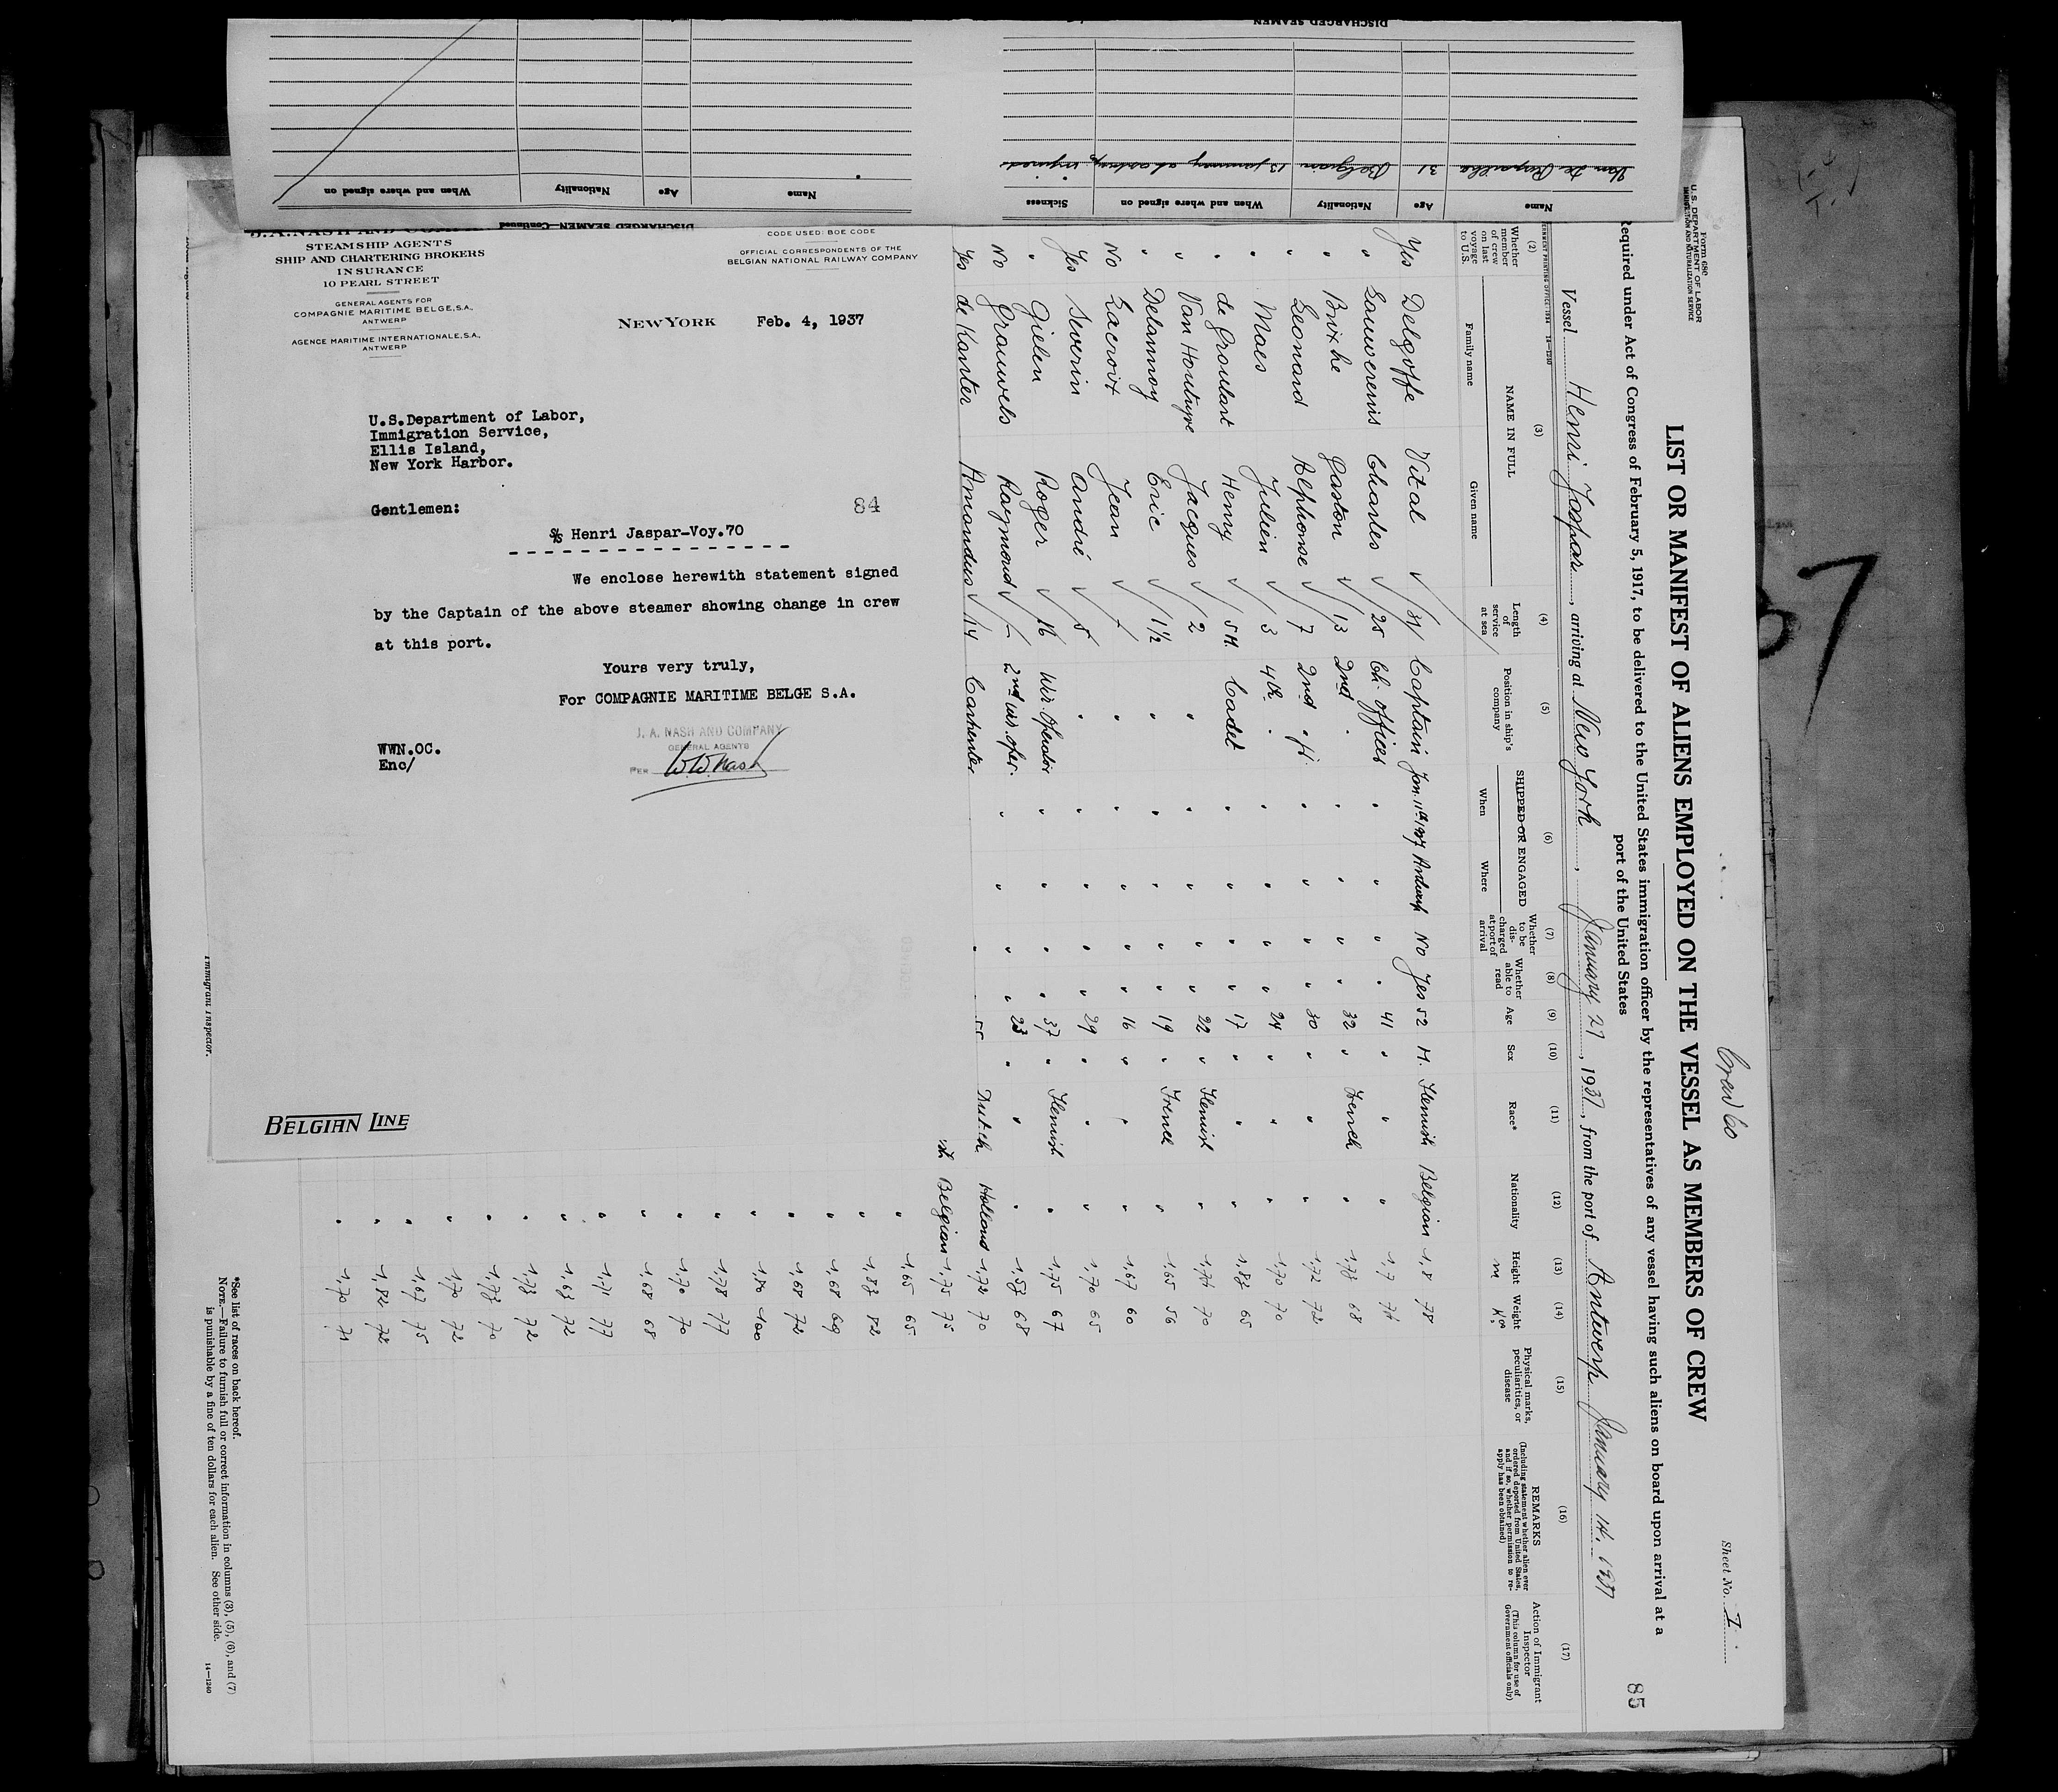 DISCHARGED SEAMEN
Name Age Nationality When and where signed on Sickness
31 Belgian 13 january
Name Age Nationality When and where signed on
DISCHARGED SEAMEN—Continued
STEAMSHIP AGENTS
SHIP AND CHARTERING BROKERS
INSURANCE
10 PEARL STREET
GENERAL AGENTS FOR
COMPAGNIE MARITIME BELGE, S.A.,
ANTWERP
AGENCE MARITIME INTERNATIONALE, S.A.,
ANTWERP
CODE USED: BOE CODE
OFFICIAL CORRESPONDENTS OF THE
BELGIAN NATIONAL RAILWAY COMPANY
NEW YORK Feb. 4, 1937
U.S.Department of Labor,
Immigration Service,
Ellis Island,
New York Harbor.
Gentlemen:
84
S/S Henri Jaspar-Voy.70
We enclose herewith statement signed
by the Captain of the above steamer showing change in crew
at this port.
Yours very truly,
For COMPAGNIE MARITIME BELGE S.A.
J. A. NASH AND COMPANY
GENERAL AGENTS
PER W.W. Nash
WWN.OC.
Enc/
BELGIAN LINE
Immigrant Inspector.
Crew 60
Sheet No. I
Form 680
U. S. DEPARTMENT OF LABOR
IMMIGRATION AND NATURALIZATION SERVICE
LIST OR MANIFEST OF ALIENS EMPLOYED ON THE VESSEL AS MEMBERS OF CREW
85
Required under Act of Congress of February 5, 1917, to be delivered to the United States immigration officer by the representatives of any vessel having such aliens on board upon arrival at a
port of the United States
Vessel Henri Jaspar, arriving at New York, January 27, 1937, from the port of Antwerp January 14. 1937
(2) (3) (4) (5) (6) (7) (8) (9) (10) (11) (12) (13) (14) (15) (16) (17)
Whether member of crew on last voyage to U.S.
NAME IN FULL
Family name Given name
Length of service at sea
Position in ship's company
SHIPPED OR ENGAGED
When Where
Whether to be discharged at port of arrival
Whether able to read
Age
Sex
Race*
Nationality
Height m
Weight
Physical marks, peculiarities, or disease
REMARKS
(Including statement whether alien ever ordered deported from United States, and if so, whether permission to reapply has been obtained)
Action of Immigrant Inspector
(This column for use of Government officials only)
Yes Delgoffe Vital 31 Captain Jan. 11th 1937 Antwerp No Yes 52 M. Flemish Belgian 1,8 78
" Lauwereins Charles 25 Ch. officer " " " " 41 " " "
" Brixhe Gaston 13 2nd " " " " " 32 " French " 68
" Leonard Alphonse 7 2nd " " " " 30 " " " 1,72 72
" Maes Julien 3 4th " " " " " 24 " " " 1,70 70
" Henry 5 M. Cadet " " " " 17 " " " 65
" Van Houtryve Jacques 2 " " " " " 22 " Flemish " 70
" Delannoy Eric 1½ " " " " " 19 " French " 1,65 56
No Lacroix Jean - " " " " " 16 " " " 1,67 60
Yes Severin André 5 " " " " " 29 " " " 1,70 65
" Gielen Roger 16 Wir. Operator " " " " 37 " Flemish " 1,75 67
No Grauwels Raymond - 2nd wir. oper. " " " " 23 " " " 68
Yes de Kanter Amandus 14 Carpenter " Dutch Holland 1,72 70
Belgian 1,75 75
" 1,65 65
" 1,83 82
" 1,68 69
" 1,68 72
" 1,80 100
" 1,78 77
" 1,70 70
" 1,68 68
" 1,71 77
" 72
" 1,73 72
" 1,73 70
" 1,70 72
" 1,67 75
" 1,82 72
" 1,70 71
*See list of races on back hereof.
NOTE.—Failure to furnish full or correct information in columns (3), (5), (6), and (7)
is punishable by a fine of ten dollars for each alien. See other side.
14—1240